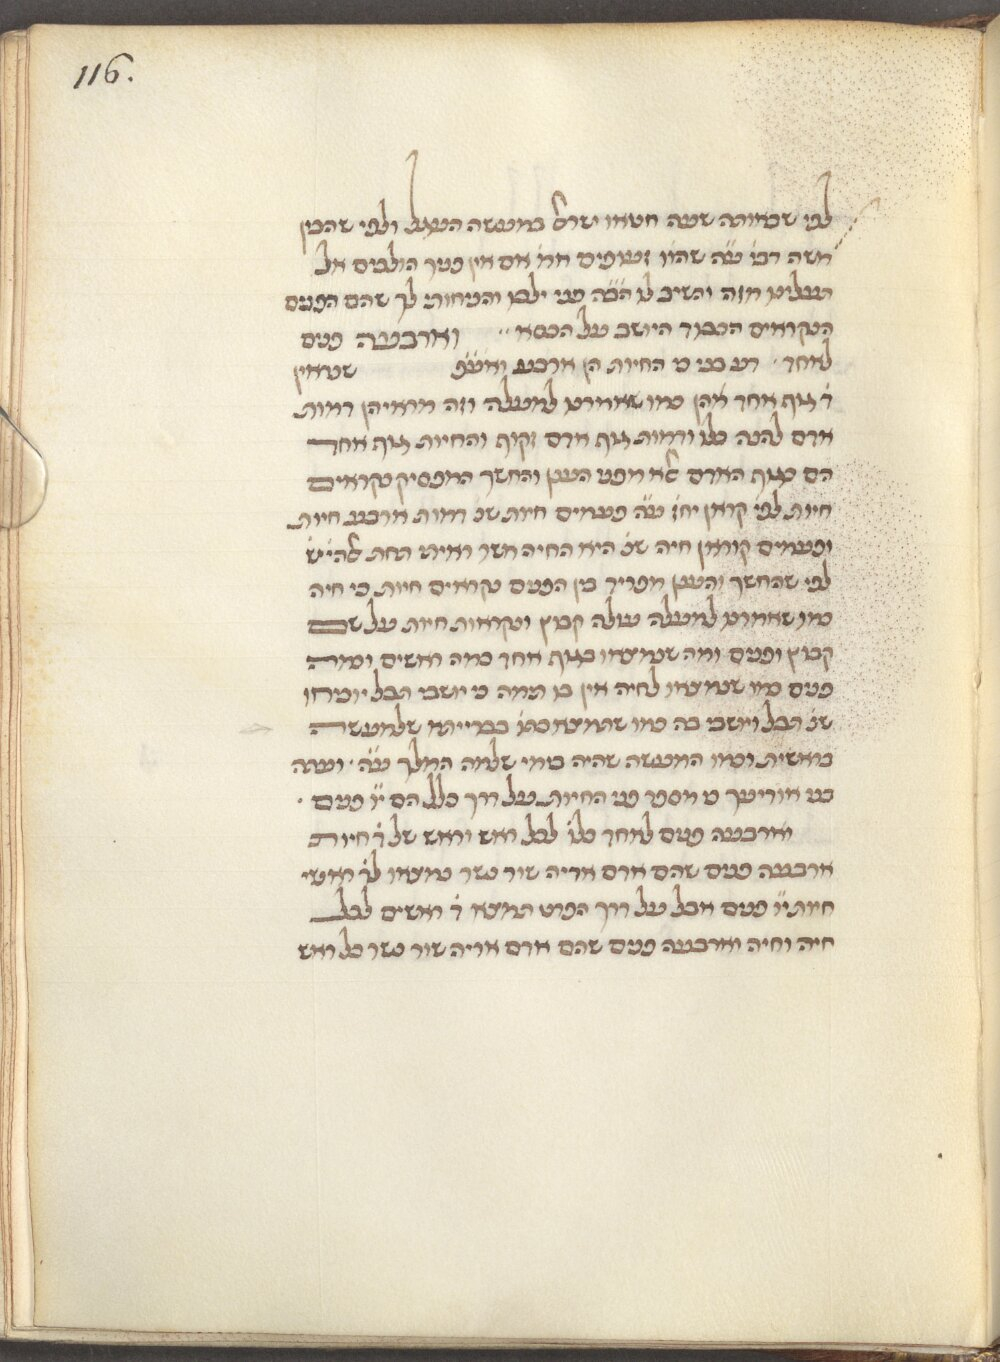 116.
לפי שבאותה שעה חטאו ישרל במעשה העגל ולפי שהבין
משה רבי׳ ע״ה שהיו זעופים אמ׳ אם אין פניך הולכים אל
תעלינו מזה והשיב לו הב״ה פני ילכו והניחותי לך שהם הפנים
הנקראים הכבוד היושב על הכסא וארבעה פנים
לאחד דע בני כי החיות הן ארבע ואעפ שאין
ד׳ גוף אחד להן כמו שאמרנו למעלה וזה מראיהן דמות
אדם להנה כלו׳ ודמות גוף אדם זקוף והחיות גוף אחד
הם כגוף האדם לא מפני הענן והחשך המפסיק נקראים
חיות לפי קראן יחז׳ ע״ה פעמים חיות שנ׳ דמות ארבע חיות
ופעמים קוראן חיה שנ׳ היא החיה אשר ראיתי תחת
לפי שהחשך והענן מפריד בין הפנים נקראים חיות כי חיה
כמו שאמרנו למעלה עולה קבוץ ונקראות חיות על שם
קבוץ ופנים ומה שמצאו בגוף אחד כמה ראשים וכמה
פנים כמו שמצאו לחיה אין בו תמה כי יושבי תבל יוכיחו
שנ׳ תבל ויושבי בה כמו שתמצא כתו׳ בברייתא שלמעשה
בראשית וכמו המעשה שהיה בימי שלמה המלך ע״ה ועתה
בני אודיעך כי מספר פני החיות על דרך כלל הם י״ו פנים
וארבעה פנים לאחד כלו׳ לכל ראש וראש של ד׳ חיות
ארבעה פנים שהם אדם אריה שור נשר נמצאו לד׳ ראשי
חיות י״ו פנים אבל על דרך הפרט תמצא ד׳ ראשים לכל
חיה וחיה וארבעה פנים שהם אדם אריה שור נשר כל ראש